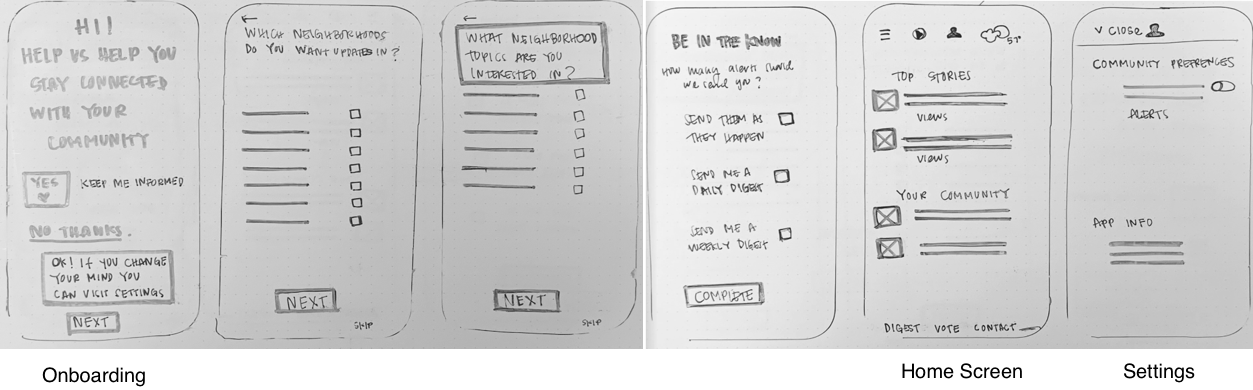 HI!
HELP US HELP YOU
STAY CONNECTED
WITH YOUR
COMMUNITY
YES
KEEP ME INFORMED
NO THANKS.
OK! If YOU CHANGE
YOUR MIND YOU
CAN VISIT SETTINGS
NEXT
WHICH NEIGHBORHOODS
DO YOU WANT UPDATES IN?
NEXT
SKIP
WHAT NEIGHBORHOOD
TOPICS ARE YOU
INTERESTED IN?
NEXT
SKIP
BE IN THE KNOW
How many alerts should
we send you?
SEND THEM AS
THEY HAPPEN
SEND ME A
DAILY DIGEST
SEND ME A
WEEKLY DIGEST
COMPLETE
57°
TOP STORIES
VIEWS
VIEWS
YOUR COMMUNITY
DIGEST VOTE CONTACT
V CLOSE
COMMUNITY PREFRENCES
ALERTS
APP INFO
Onboarding
Home Screen
Settings